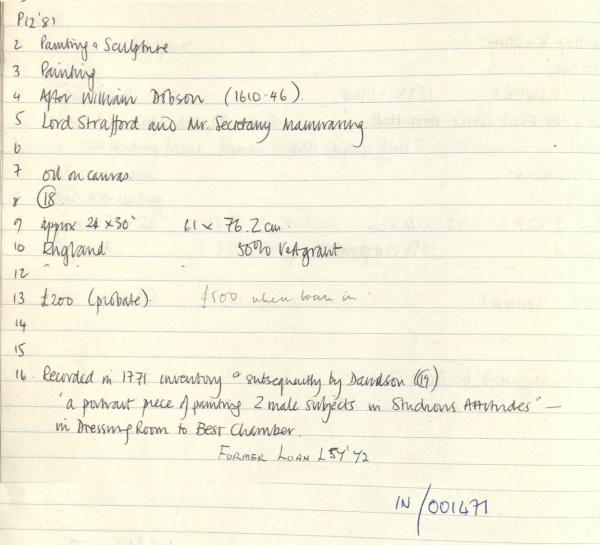 P(2'81
2 Painting & Sculpture
3 Painting
4 After William Dobson (1610-46).
5 Lord Strafford and Mr. Secretary Mainwaring
6
7 oil on canvas.
8 (18)
9 approx 24 x 30" 61 x 76.2 cm.
10 England 50% V&A grant
12 " "
13 £200 (probate). £500 when loan in.
14
15
16. Recorded in 1771 inventory & subsequently by Davidson (19)
'a portrait piece of painting 2 male subjects in Studious Attitudes" —
in Dressing Room to Best Chamber.
FORMER LOAN L54'72
IN/001471